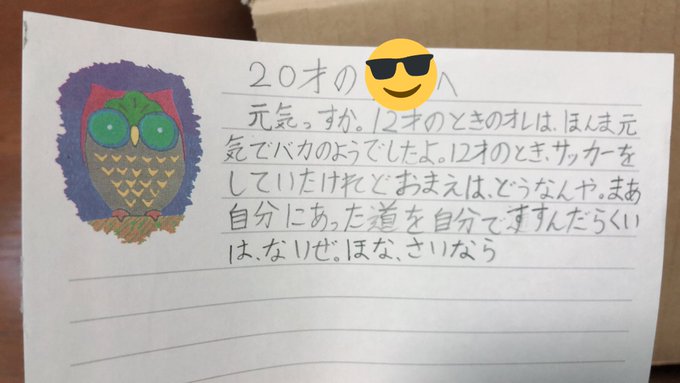 20才の へ
元気っすか。12才のときのオレは、ほんま元
気でバカのようでしたよ。12才のとき、サッカーを
していたけれどおまえは、どうなんや。まあ
自分にあった道を自分ですすんだらくい
は、ないぜ。ほな、さいなら